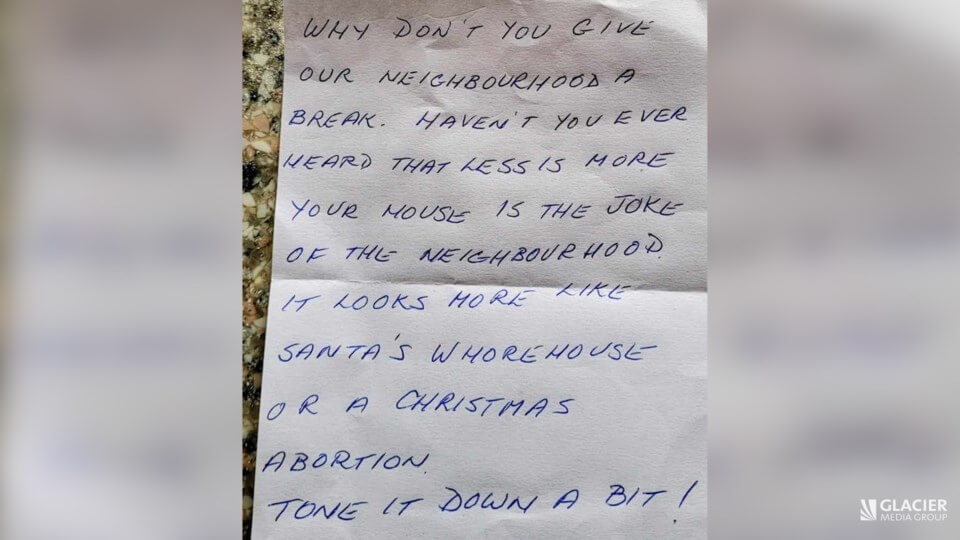 WHY DON'T YOU GIVE
OUR NEIGHBOURHOOD A
BREAK. HAVEN'T YOU EVER
HEARD THAT LESS IS MORE
YOUR HOUSE IS THE JOKE
OF THE NEIGHBOURHOOD.
IT LOOKS MORE LIKE
SANTA'S WHOREHOUSE
OR A CHRISTMAS
ABORTION.
TONE IT DOWN A BIT!
GLACIER
MEDIA GROUP